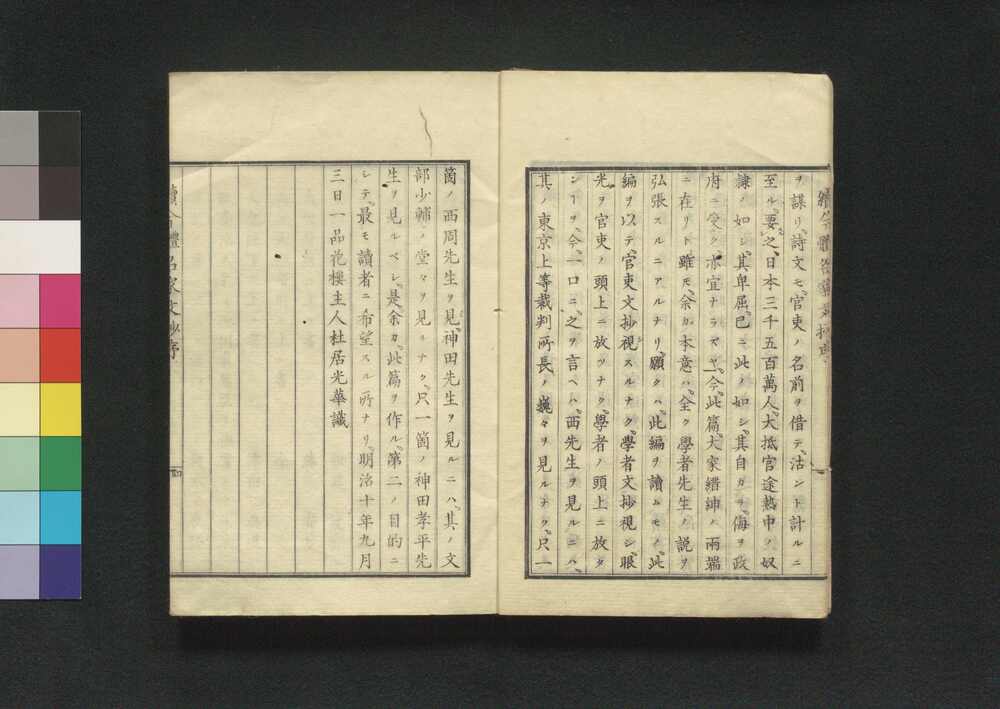 ヲ謀リ、詩文モ、官吏ノ名前ヲ借テ、沽ント計ルニ
至ル、要之、日本三千五百萬人、大抵官途熱中ノ奴
隷ノ如シ、其卑屈、已ニ此ノ如シ、其自カラ、侮ヲ政
府ニ受ク、亦宜ナラズヤ、今此篇、大家縉紳ノ兩端
ニ在リト雖モ、余カ本意ハ、全ク學者先生ノ説ヲ
弘張スルニアルナリ、願クハ、此編ヲ讀ムモノ、此
編ヲ以テ、官吏文抄視スルナク、學者文抄視シ、眼
光ヲ官吏ノ頭上ニ放ツナク、學者ノ頭上ニ放タ
ンヿヲ、今一口ニ、之ヲ言ヘハ、西先生ヲ見ルニハ、
其ノ東京上等裁判所長ノ巍々ヲ見ルナク、只一
箇ノ西周先生ヲ見、神田先生ヲ見ルニハ、其ノ文
部少輔ノ堂々ヲ見ルナク、只一箇ノ神田孝平先
生ヲ見ルベシ、是余カ、此篇ヲ作ル、第二ノ目的ニ
シテ、最モ讀者ニ希望スル所ナリ、明治十年九月
三日一品花樓主人杜居光華識
續今體名家文抄序
四